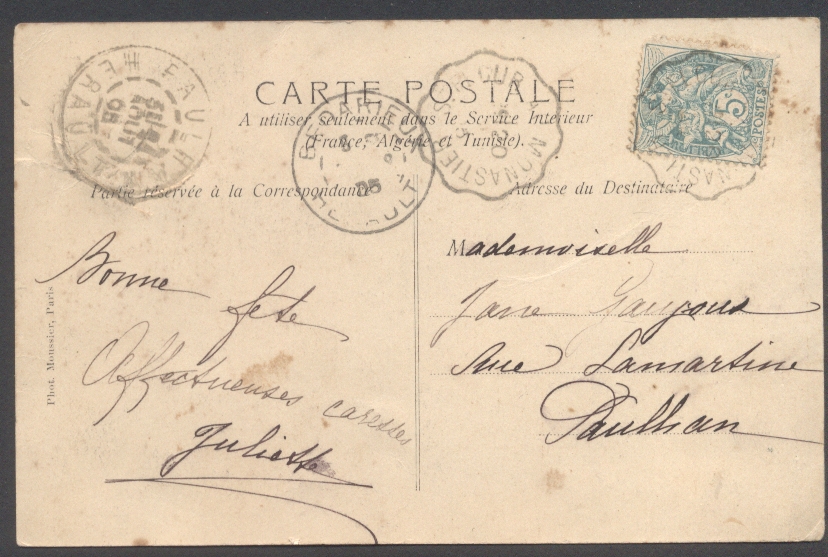 CARTE POSTALE
A utiliser seulement dans le Service Intérieur
(France, Algérie et Tunisie).
Partie réservée à la Correspondance
Adresse du Destinataire
Bonne fête
Affectueuses caresses
Juliette
Mademoiselle
Rue Lamartine
Paulhan
Phot. Moussier, Paris
PAULHAN
HERAULT
AOUT
05
BEDARIEUX
HERAULT
05
MONASTIE
5c
POSTES